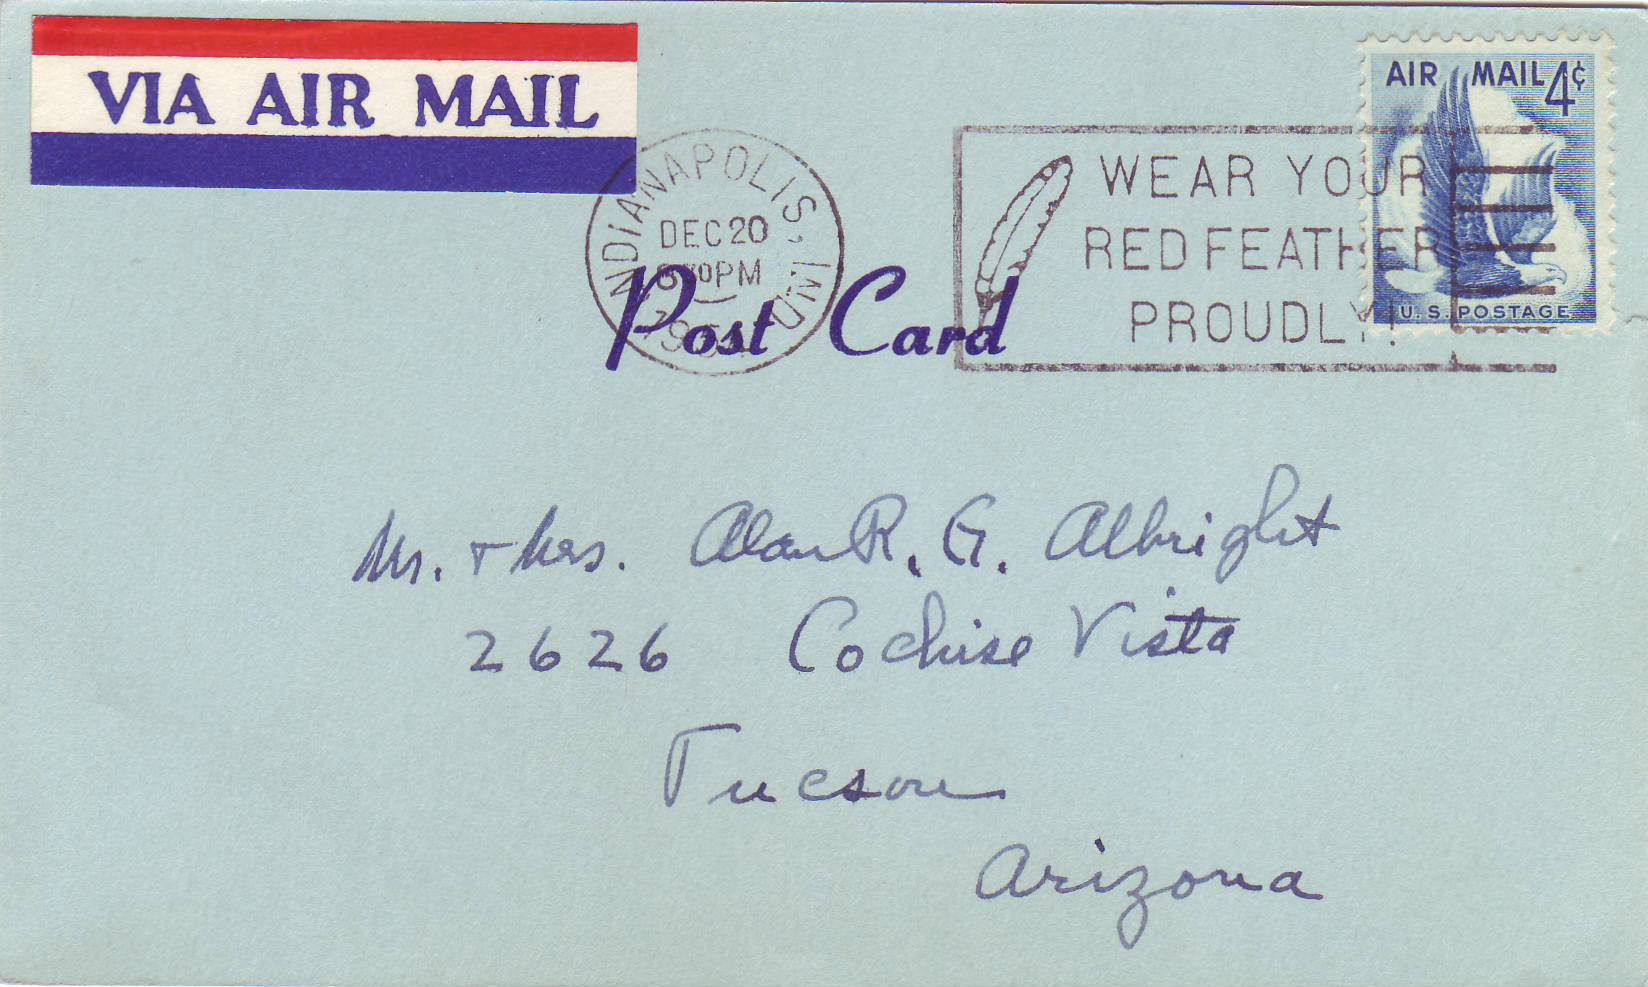 VIA AIR MAIL
AIR MAIL 4¢
U.S. POSTAGE
INDIANAPOLIS, IND
DEC 20
PM
WEAR YOUR
RED FEATHER
PROUDLY!
Post Card
Mr. + Mrs. Alan R. G. Albright
2626 Cochise Vista
Tucson
Arizona